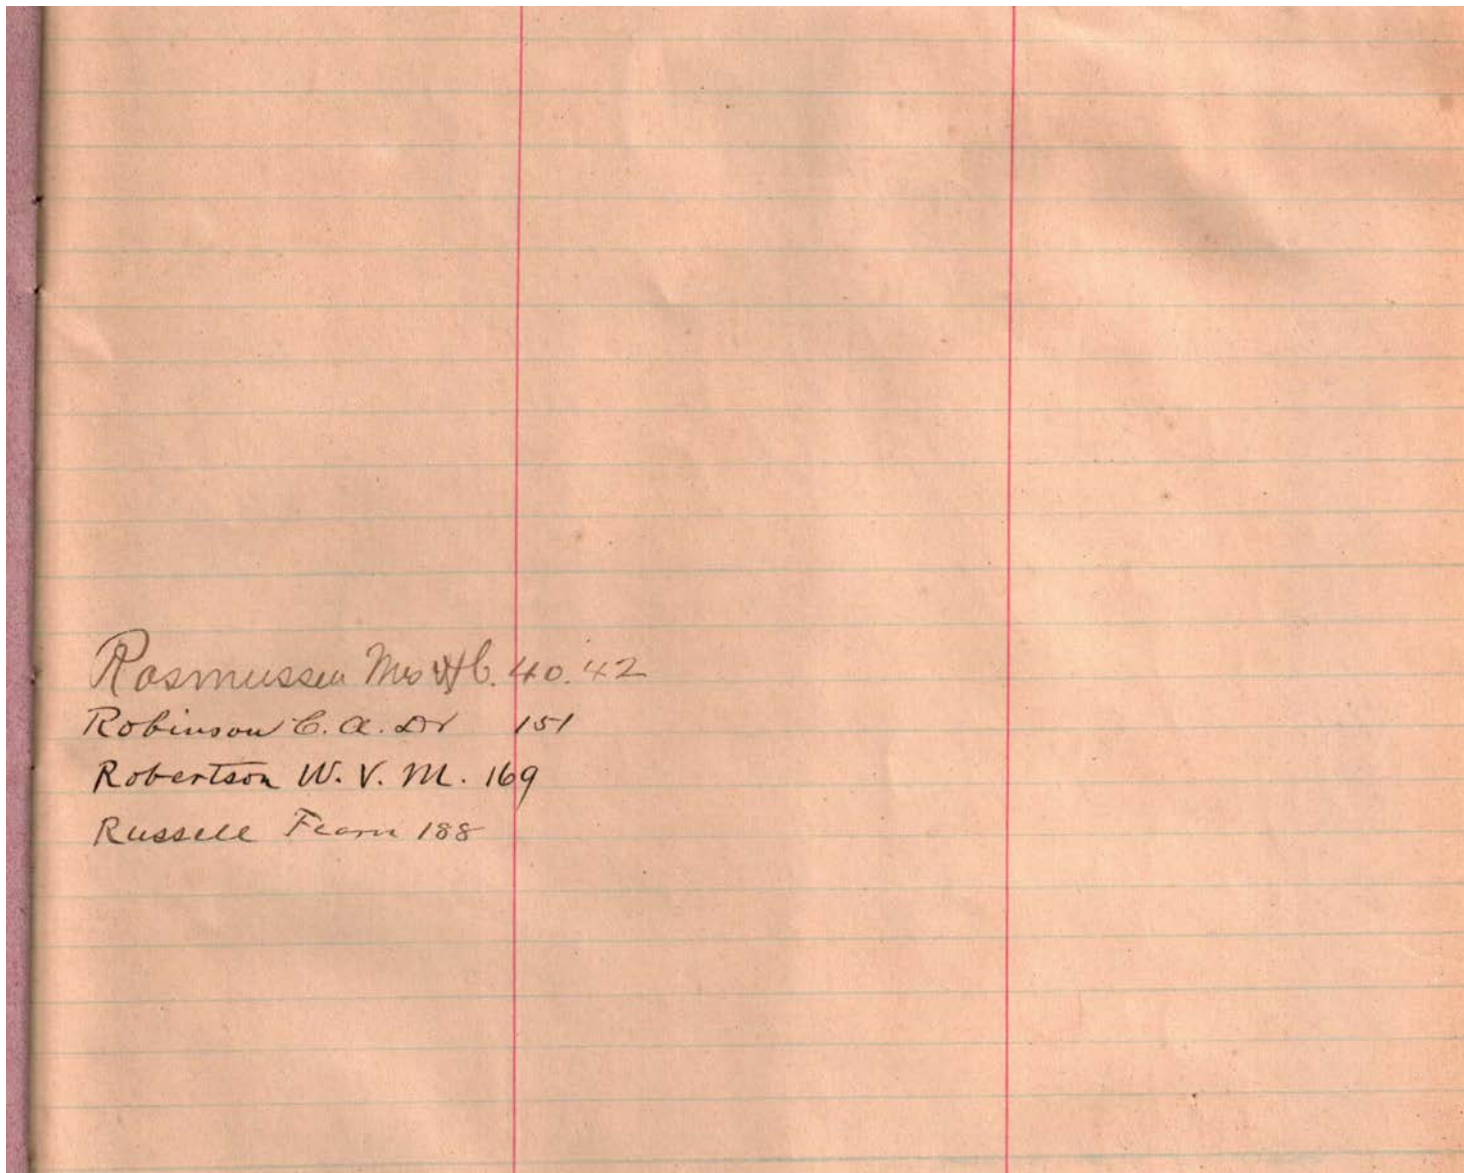 Rasmussen Mrs H C. 40. 42
Robinson C. A. Dr 151
Robertson W. V. M. 169
Russell Fearn 188